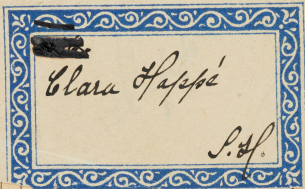 Clara Happé
S.H.